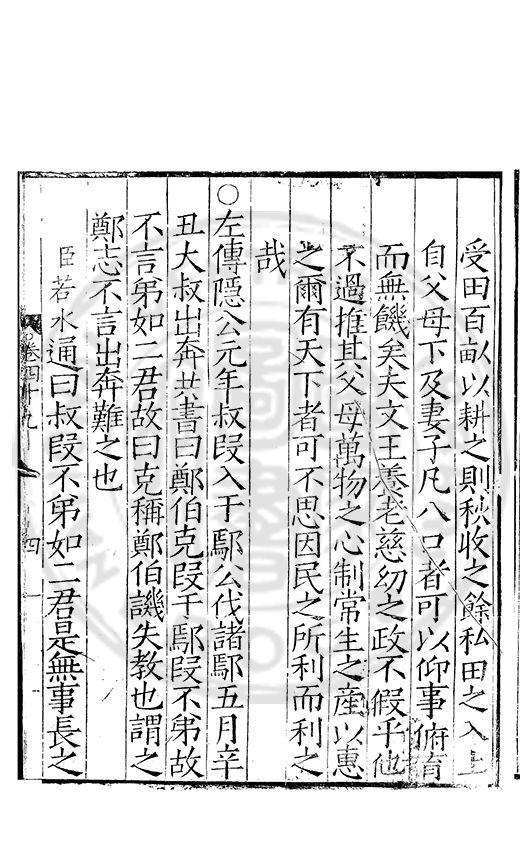 受田百畝以耕之則秋收之餘私田之入上
自父母下及妻子凡八口者可以仰事俯育
而無饑矣夫文王養老慈幼之政不假乎他
不過推其父母萬物之心制常生之產以惠
之爾有天下者可不思因民之所利而利之
哉
○左傳隱公元年叔段入于鄢公伐諸鄢五月辛
丑大叔出奔共書曰鄭伯克段于鄢段不弟故
不言弟如二君故曰克稱鄭伯譏失教也謂之
鄭志不言出奔難之也
臣若水通曰叔段不弟如二君是無事長之
卷四十九
四